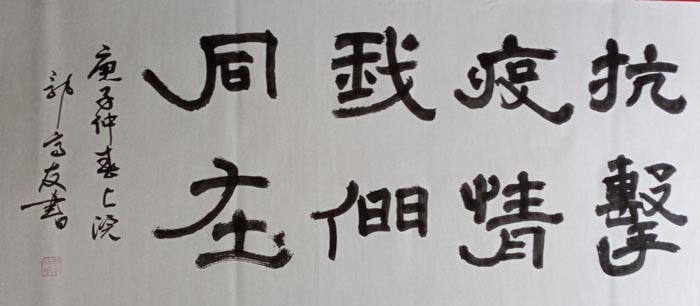 抗擊
疫情
我們
同在
庚子仲春上浣
高友書